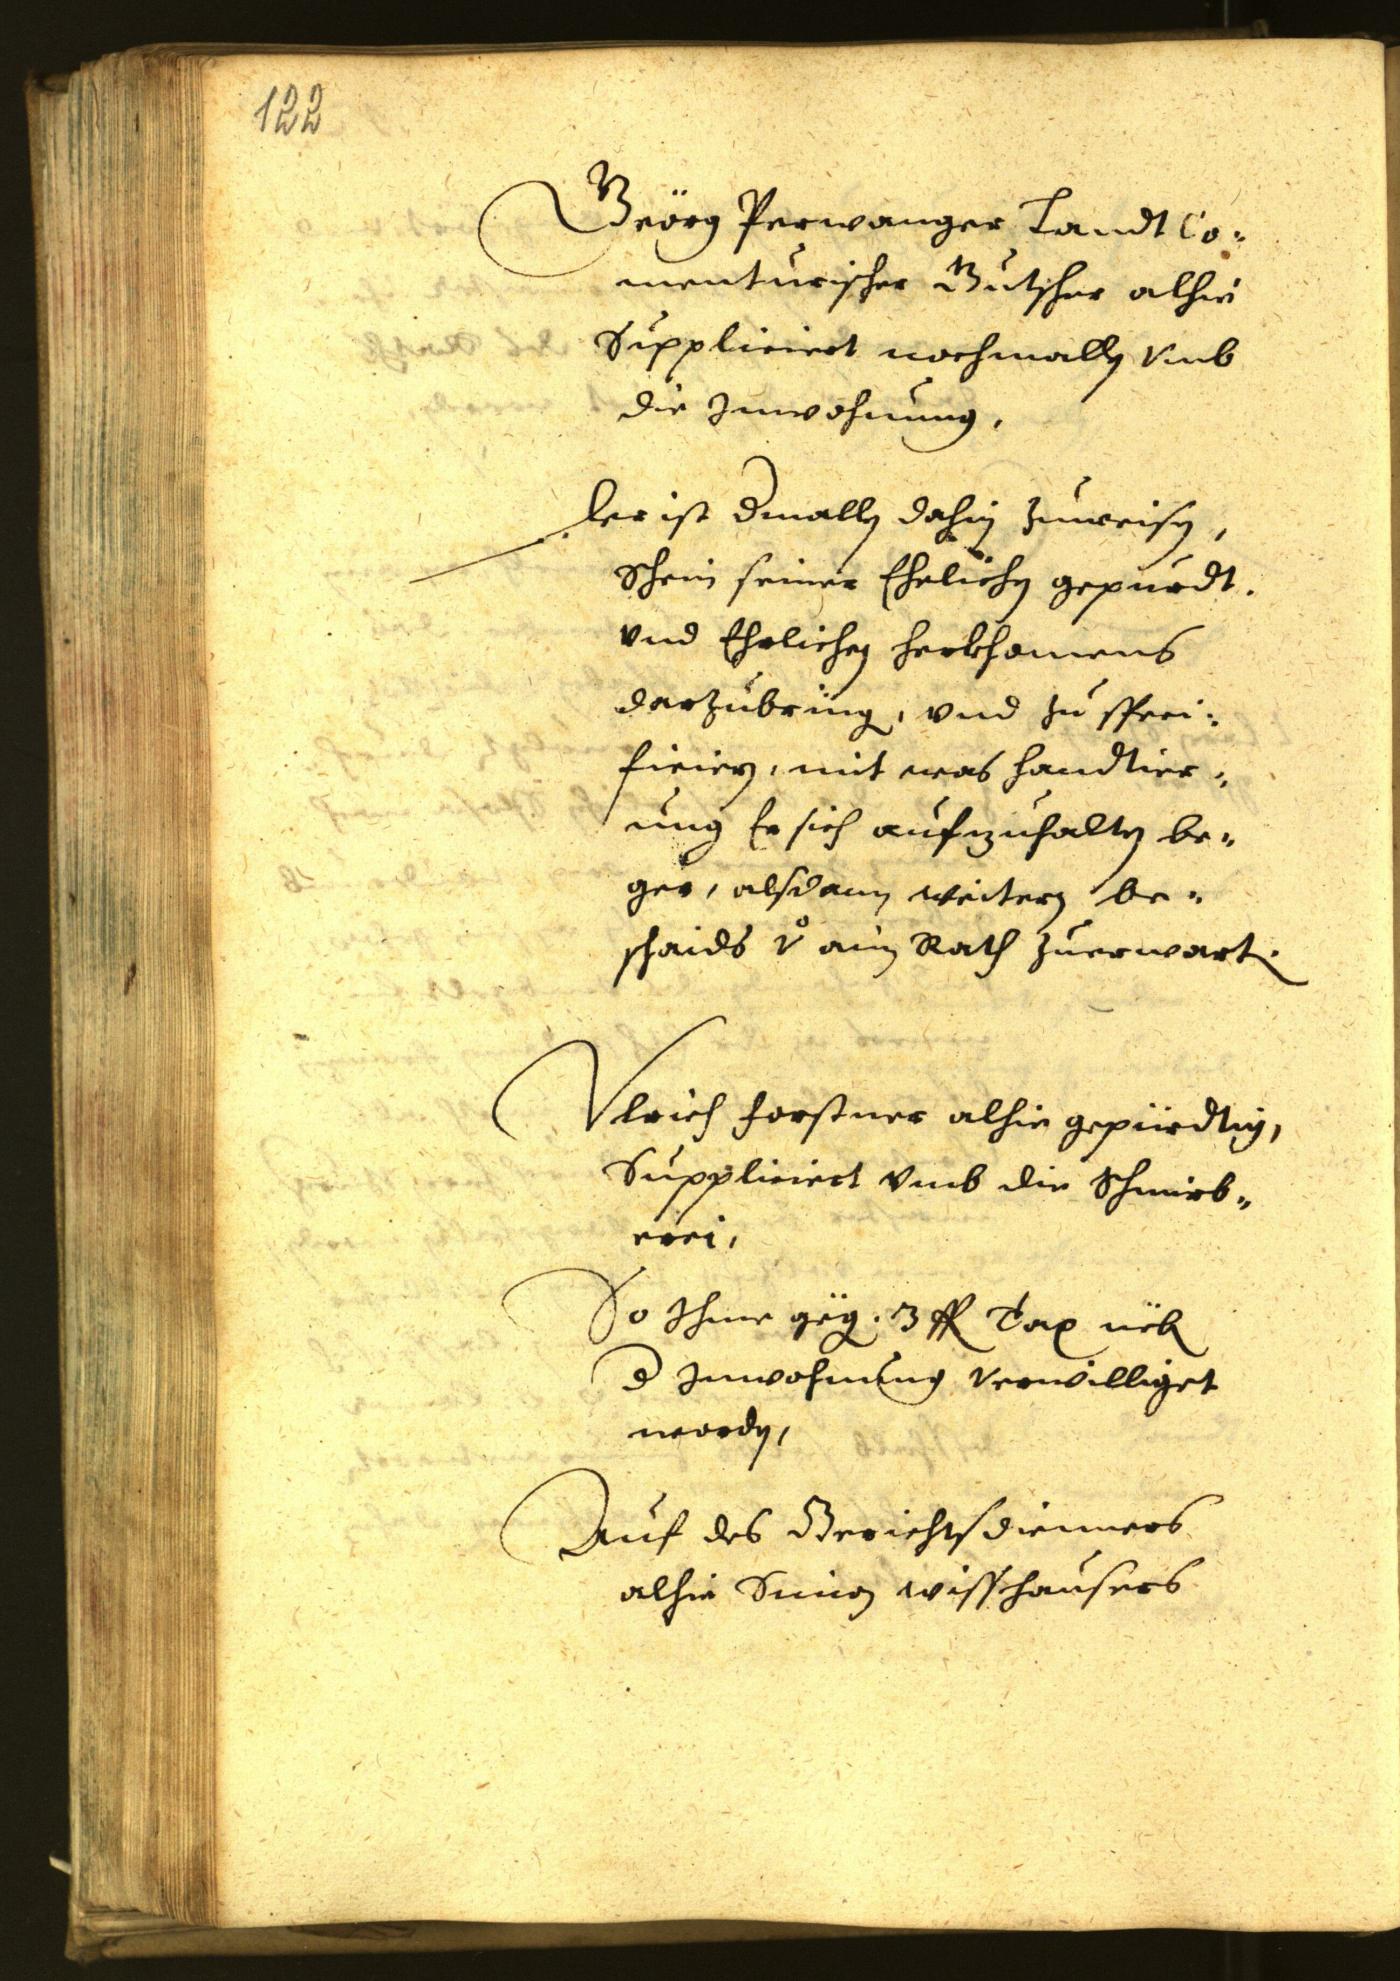 122
Geörg Perwanger Landt Co¬
menturischer Butscher alhie
Suppliciert nochmalln vmb
die Inwohnung,
Er ist dmalln dahin zuweisn,
Schein seiner Ehelichn gepurdt.
vnd Ehrlichen herkhomens
darzubring, vnd zu speci¬
ficiern, mit was handtier¬
ung Er sich aufzuhaltn be¬
ger, alsdann weitern be¬
schaids vo ainem Rath zuerwart.
Vlrich Forstner alhie gepürdtig,
Suppliciert vmb die Schmirb¬
erei,
So Ihme geg. 3 fl Tax
d Inwohnung verwilliget
wordn,
Auf des Gerichtsdienners
alhie Simon Wisshausers